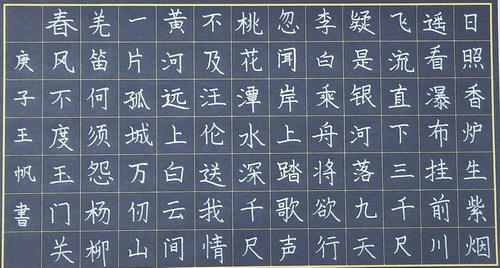 日照香炉生紫烟
遥看瀑布挂前川
飞流直下三千尺
疑是银河落九天
李白乘舟将欲行
忽闻岸上踏歌声
桃花潭水深千尺
不及汪伦送我情
黄河远上白云间
一片孤城万仞山
羌笛何须怨杨柳
春风不度玉门关
庚子王帆書